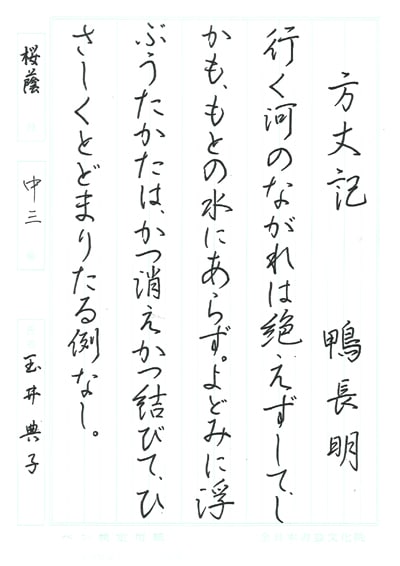 方丈記 鴨長明
行く河のながれは絶えずして、し
かも、もとの水にあらず。よどみに浮
ぶうたかたは、かつ消えかつ結びて、ひ
さしくとどまりたる例なし。
桜蔭 中三 玉井典子